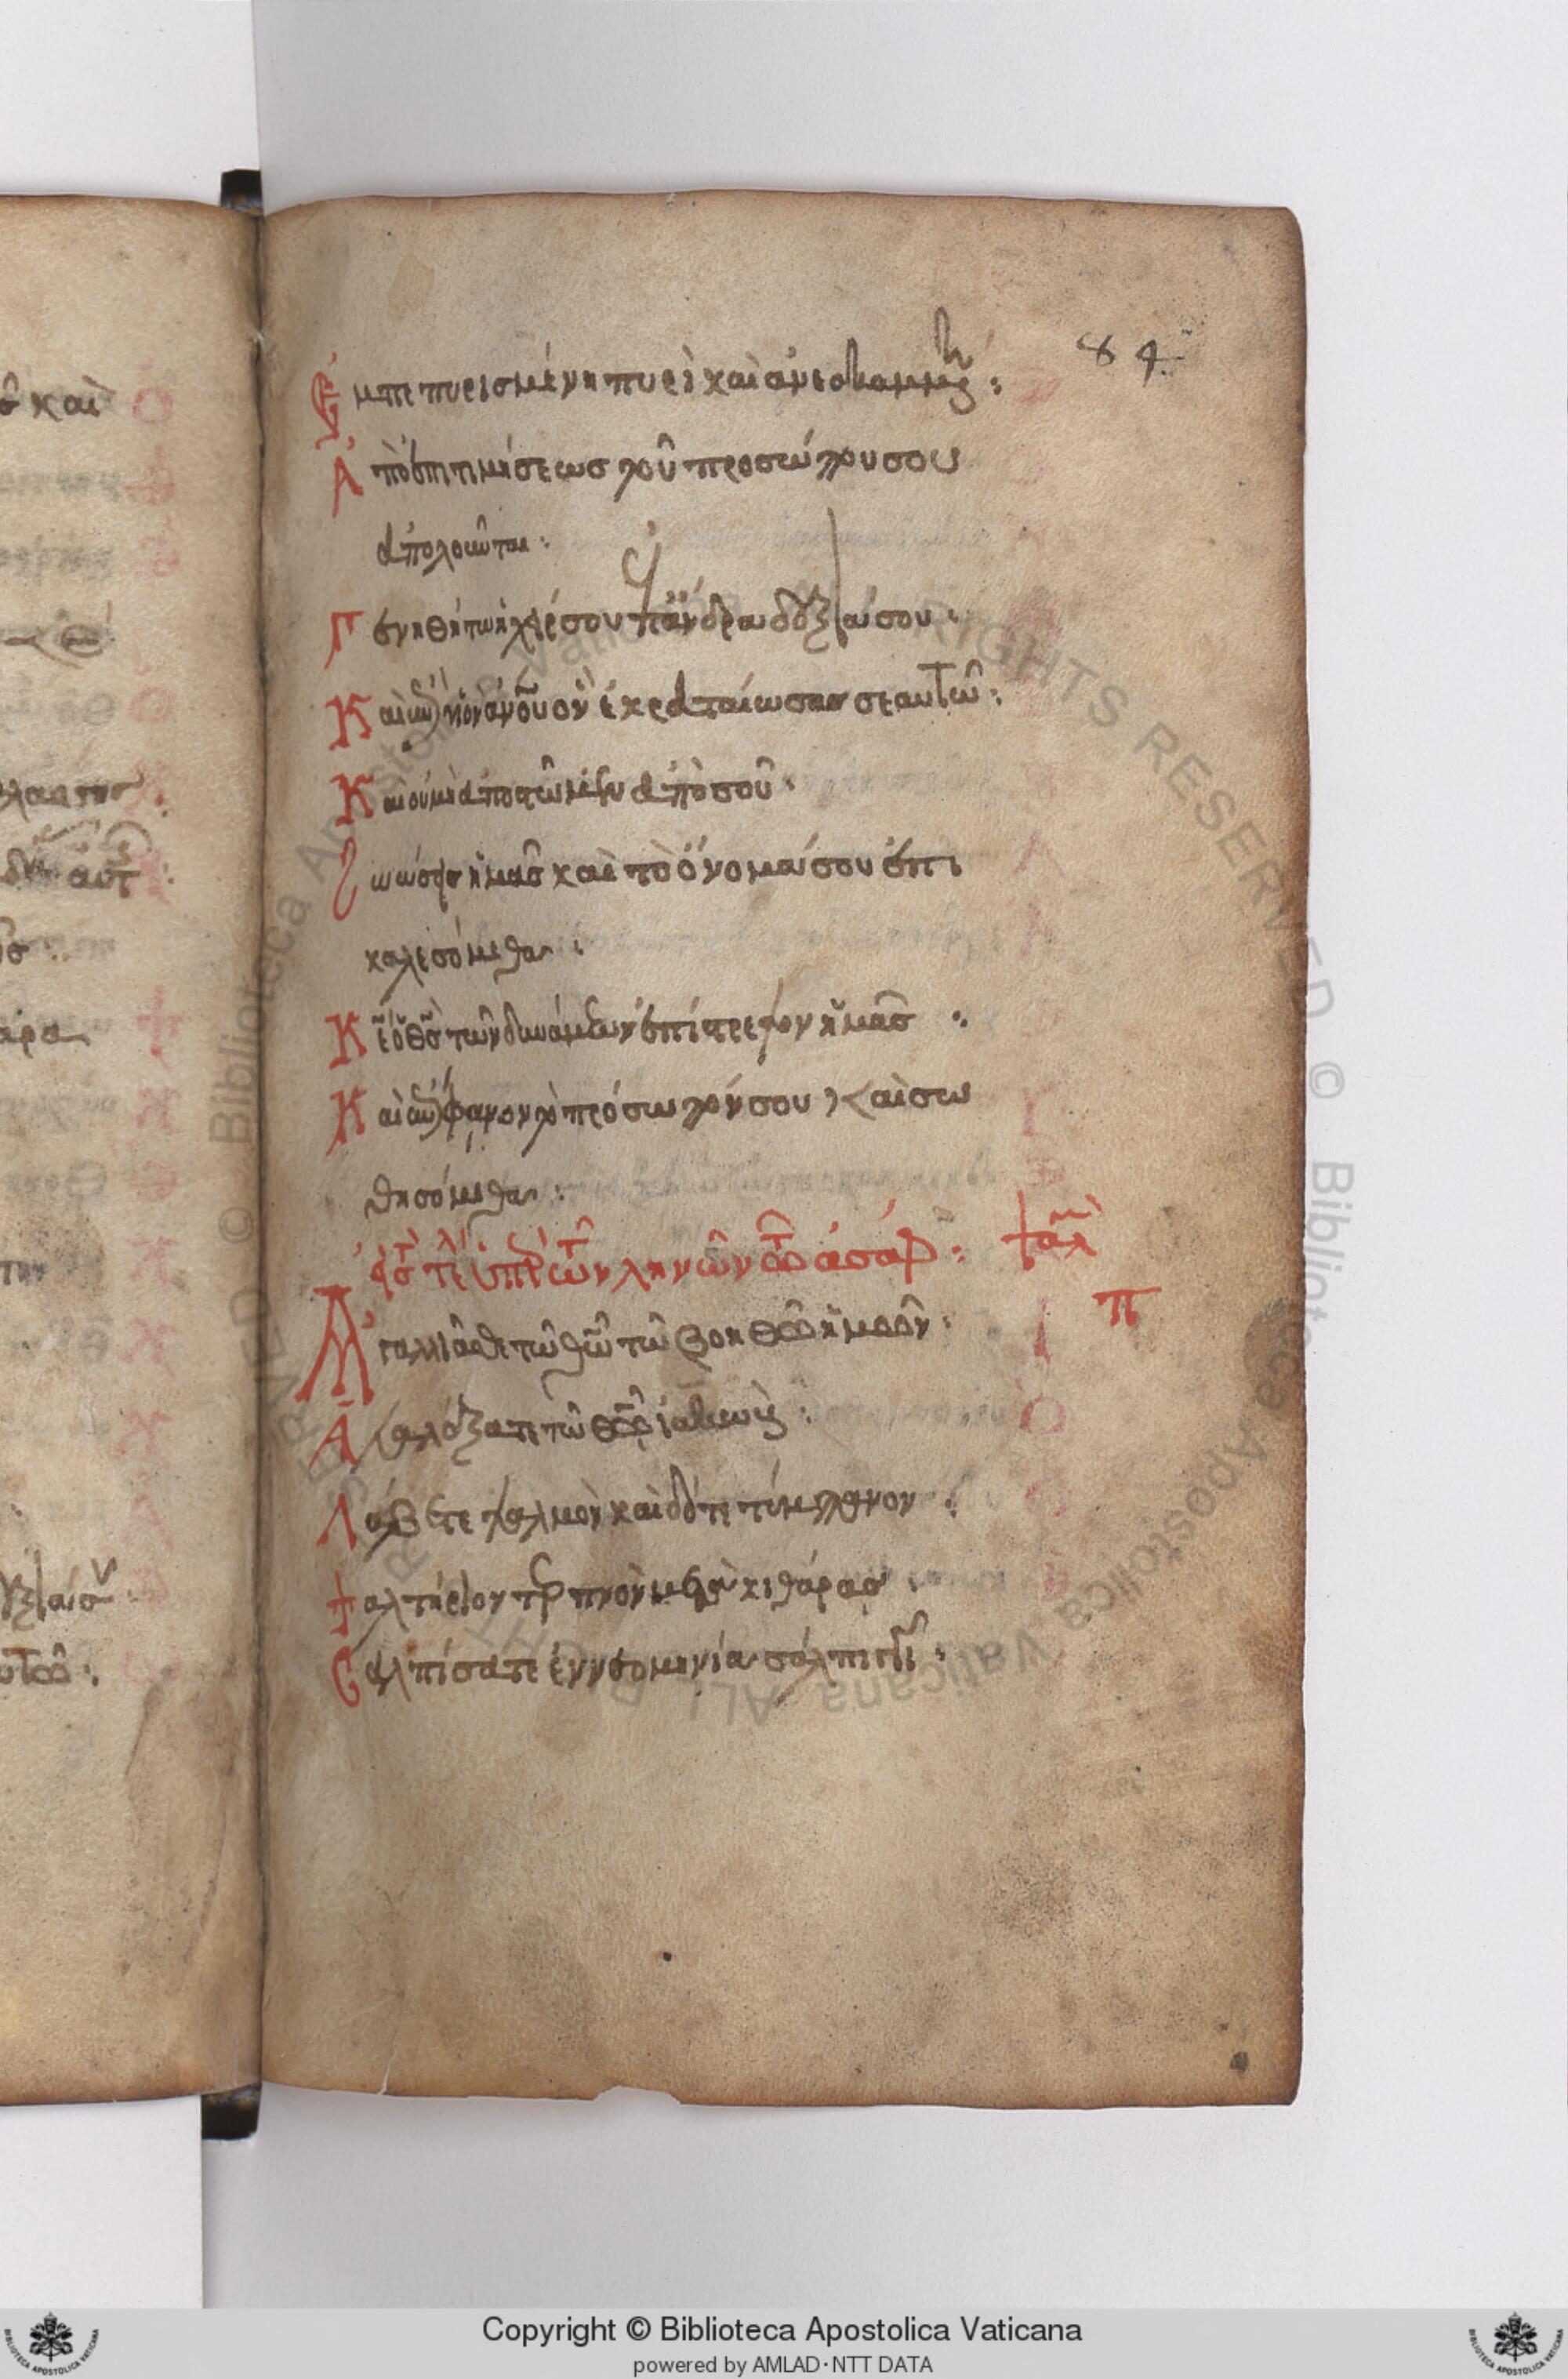 84
Ἐμπεπυρισμένη πυρὶ καὶ ἀνεσκαμμένη:
Ἀπὸ ἐπιτιμήσεως τοῦ προσώπου σου
ἀπολοῦνται:
Γενηθήτω ἡ χείρ σου ἐπ' ἄνδρα δεξιᾶς σου:
Καὶ ἐπὶ υἱὸν ἀνο̅υ ὃν ἐκραταίωσας σεαυτῶ:
Καὶ οὐ μὴ ἀποστῶμεν ἀπὸ σοῦ:
Ζωώσεις ἡμᾶς καὶ τὸ ὄνομά σου ἐπι
καλεσόμεθα:
Κε̅ ὁ θς̅ τῶν δυνάμεων ἐπίστρεψον ἡμᾶς:
Καὶ ἐπίφανον τὸ πρόσωπόν σου καὶ σω
θησόμεθα:
εἰς τὸ τέλος ὑπὲρ τῶν ληνῶν τῶ ἀσάφ: ψαλ
π
Ἀγαλλιᾶσθε τῶ θω̅ τῶ βοηθῶ ἡμῶν:
Ἀλαλάξατε τῶ θω̅ ἰακώβ:
Λάβετε ψαλμὸν καὶ δότε τύμπανον:
Ψαλτήριον τερπνὸν μετὰ κιθάρας:
Σαλπίσατε ἐν νεομηνία σάλπιγγι:
καὶ
Copyright © Biblioteca Apostolica Vaticana
powered by AMLAD·NTT DATA